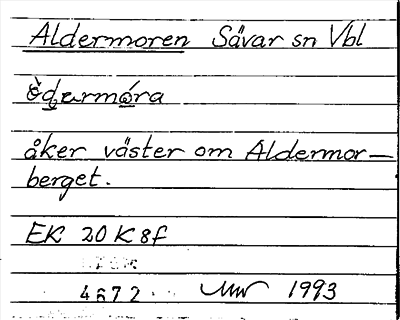 Aldermoren Sävar sn Vbl
åker väster om Aldermor-
berget.
EK 20 K 8f
4672 1993